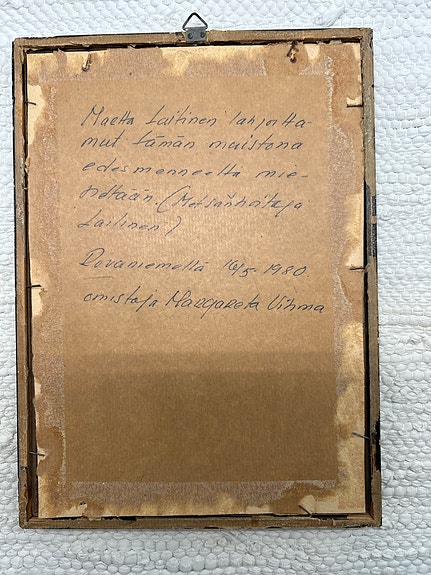 Maetta Laitinen lahjoitta-
mut tämän muistona
edesmenneeltä mie-
heltään. (Metsänhoitaja
Laitinen)
Rovaniemellä 16/5-1980
omistaja Margareta Vihma